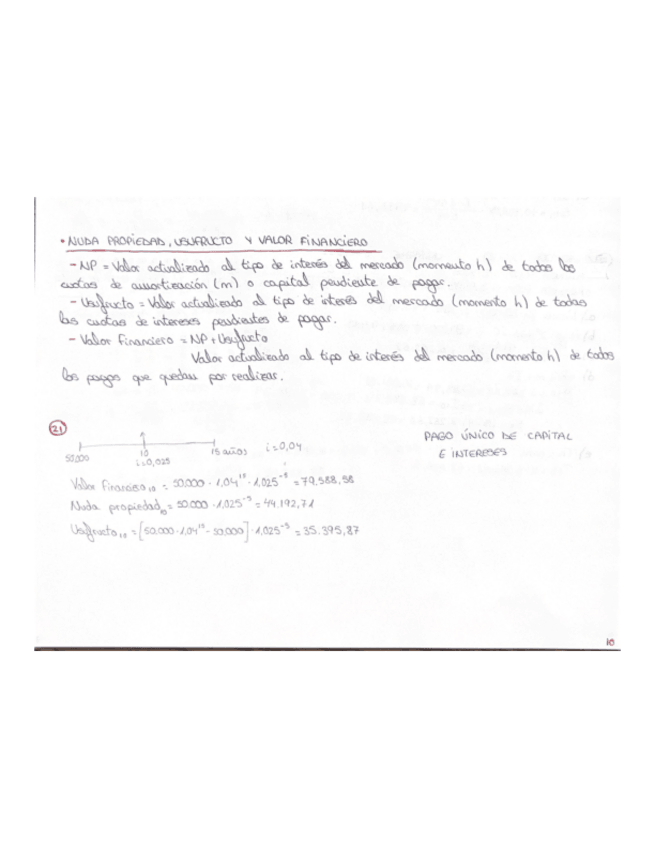 • NUDA PROPIEDAD, USUFRUCTO Y VALOR FINANCIERO
- NP = Valor actualizado al tipo de interés del mercado (momento h) de todas las
cuotas de amortización (m) o capital pendiente de pagar.
- Usufructo = Valor actualizado al tipo de interés del mercado (momento h) de todas
las cuotas de intereses pendientes de pagar.
- Valor Financiero = NP + Usufructo
Valor actualizado al tipo de interés del mercado (momento h) de todos
los pagos que quedan por realizar.
21
50,000 10 15 años i=0,04
i=0,025
PAGO ÚNICO DE CAPITAL
E INTERESES
Valor Financiero₁₀ = 50.000 · 1,04¹⁵ · 1,025⁻⁵ = 79.588,58
Nuda propiedad₁₀ = 50.000 · 1,025⁻⁵ = 44.192,71
Usufructo₁₀ = [50.000 · 1,04¹⁵ - 50,000] · 1,025⁻⁵ = 35.395,87
10